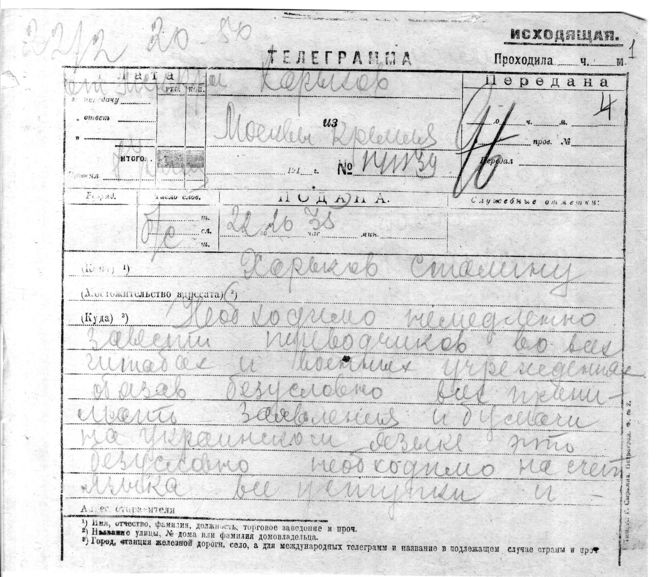 22/2 20 - 50
ИСХОДЯЩАЯ.
1
ТЕЛЕГРАММА
Проходила ч. м.
Дата
Харьков
Передана
РТК.
" подачу
4
" ответ
из
о ч. м.
"
Москвы Кремля
пров. №
ИТОГО
Передал
Принял
191 г. №
Разряд.
Число слов.
ПОДАНА.
Служебные отметки:
т.
сл.
час
мин.
(Кому) ¹)
Харьков Сталину
(Местожительство адресата) ²)
(Куда) ³) Необходимо немедленно
завести переводчиков во всех
штабах и военных учреждениях
обязав безусловно всех прини-
мать заявления и бумаги
на украинском языке это
безусловно необходимо на счет
языка все уступки и -
Адрес отправителя
¹) Имя, отчество, фамилия, должность, торговое заведение и проч.
²) Название улицы, № дома или фамилия домовладельца.
³) Город, станция железной дороги, село, а для международных телеграмм и название в подлежащем случае страны и проч.